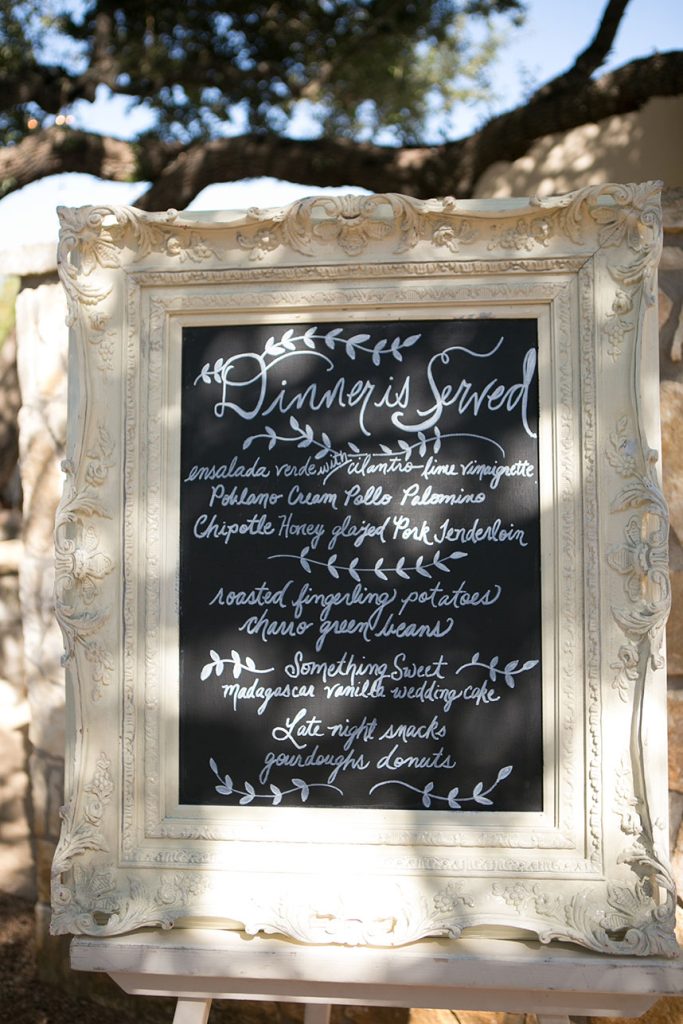 Dinner is Served
ensalada verde with cilantro-lime vinaigrette
Poblano Cream Pollo Palomino
Chipotle Honey glazed Pork Tenderloin
roasted fingerling potatoes
charro green beans
Something Sweet
Madagascar vanilla wedding cake
Late night snacks
gourdoughs donuts